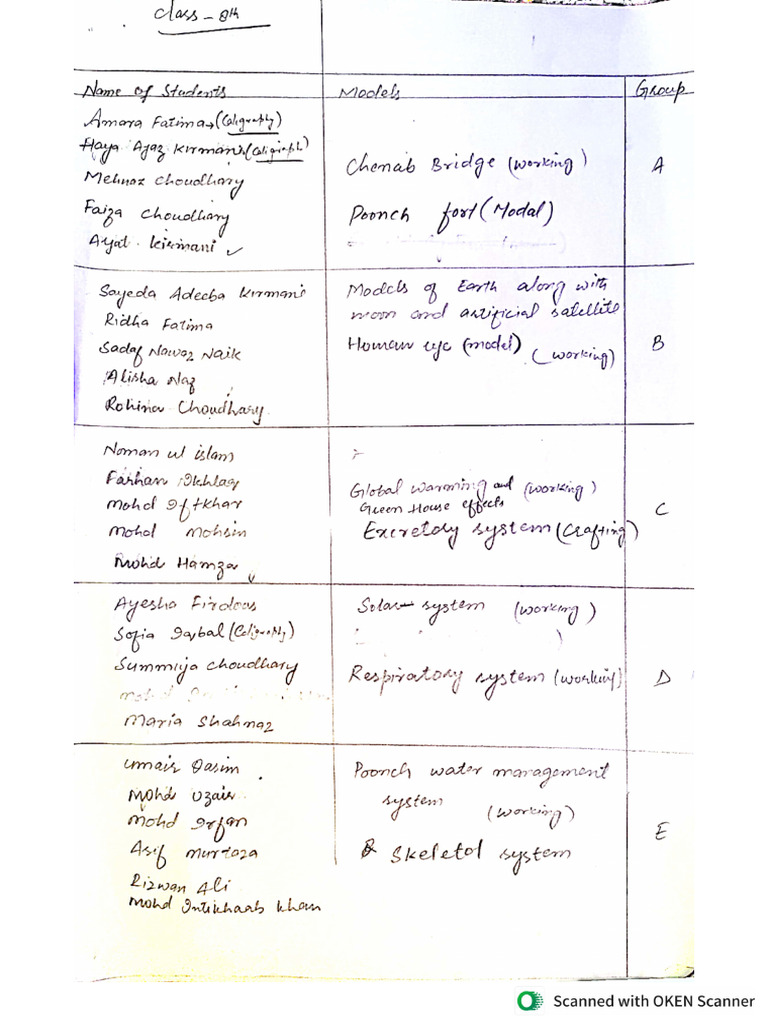 Class - 8th
Name of Students Models Group
Amara Fatima → (Caligraphy)
Haya Ajaz Kirmani (Caligraph)
Mehnaz Choudhary
Faiza Choudhary
Ayat Kirmani ✓
Chenab Bridge (working)
Poonch fort (Modal)
A
Sayeda Adeeba Kirmani
Ridha Fatima
Sadaf Nawaz Naik
Alisha Naz
Rohina Choudhary
Models of Earth along with
moon and artificial satellite
Human eye (model) (working)
B
Noman ul islam
Farhan Ikhlaq
Mohd Iftkhar
Mohd Mohsin
Mohd Hamza
Global warming and (working)
Green House effects
Excretory system (Crafting)
C
Ayesha Firdous
Sofia Iqbal (Caligraphy)
Summiya Choudhary
Mohd
Maria Shahnaz
Solar system (working)
Respiratory system (working)
D
Umair Qasim
Mohd Uzair
Mohd Irfan
Asif Murtaza
Rizwan Ali
Mohd Intikhaab Khan
Poonch water management
system (working)
& Skeletol system
E
Scanned with OKEN Scanner